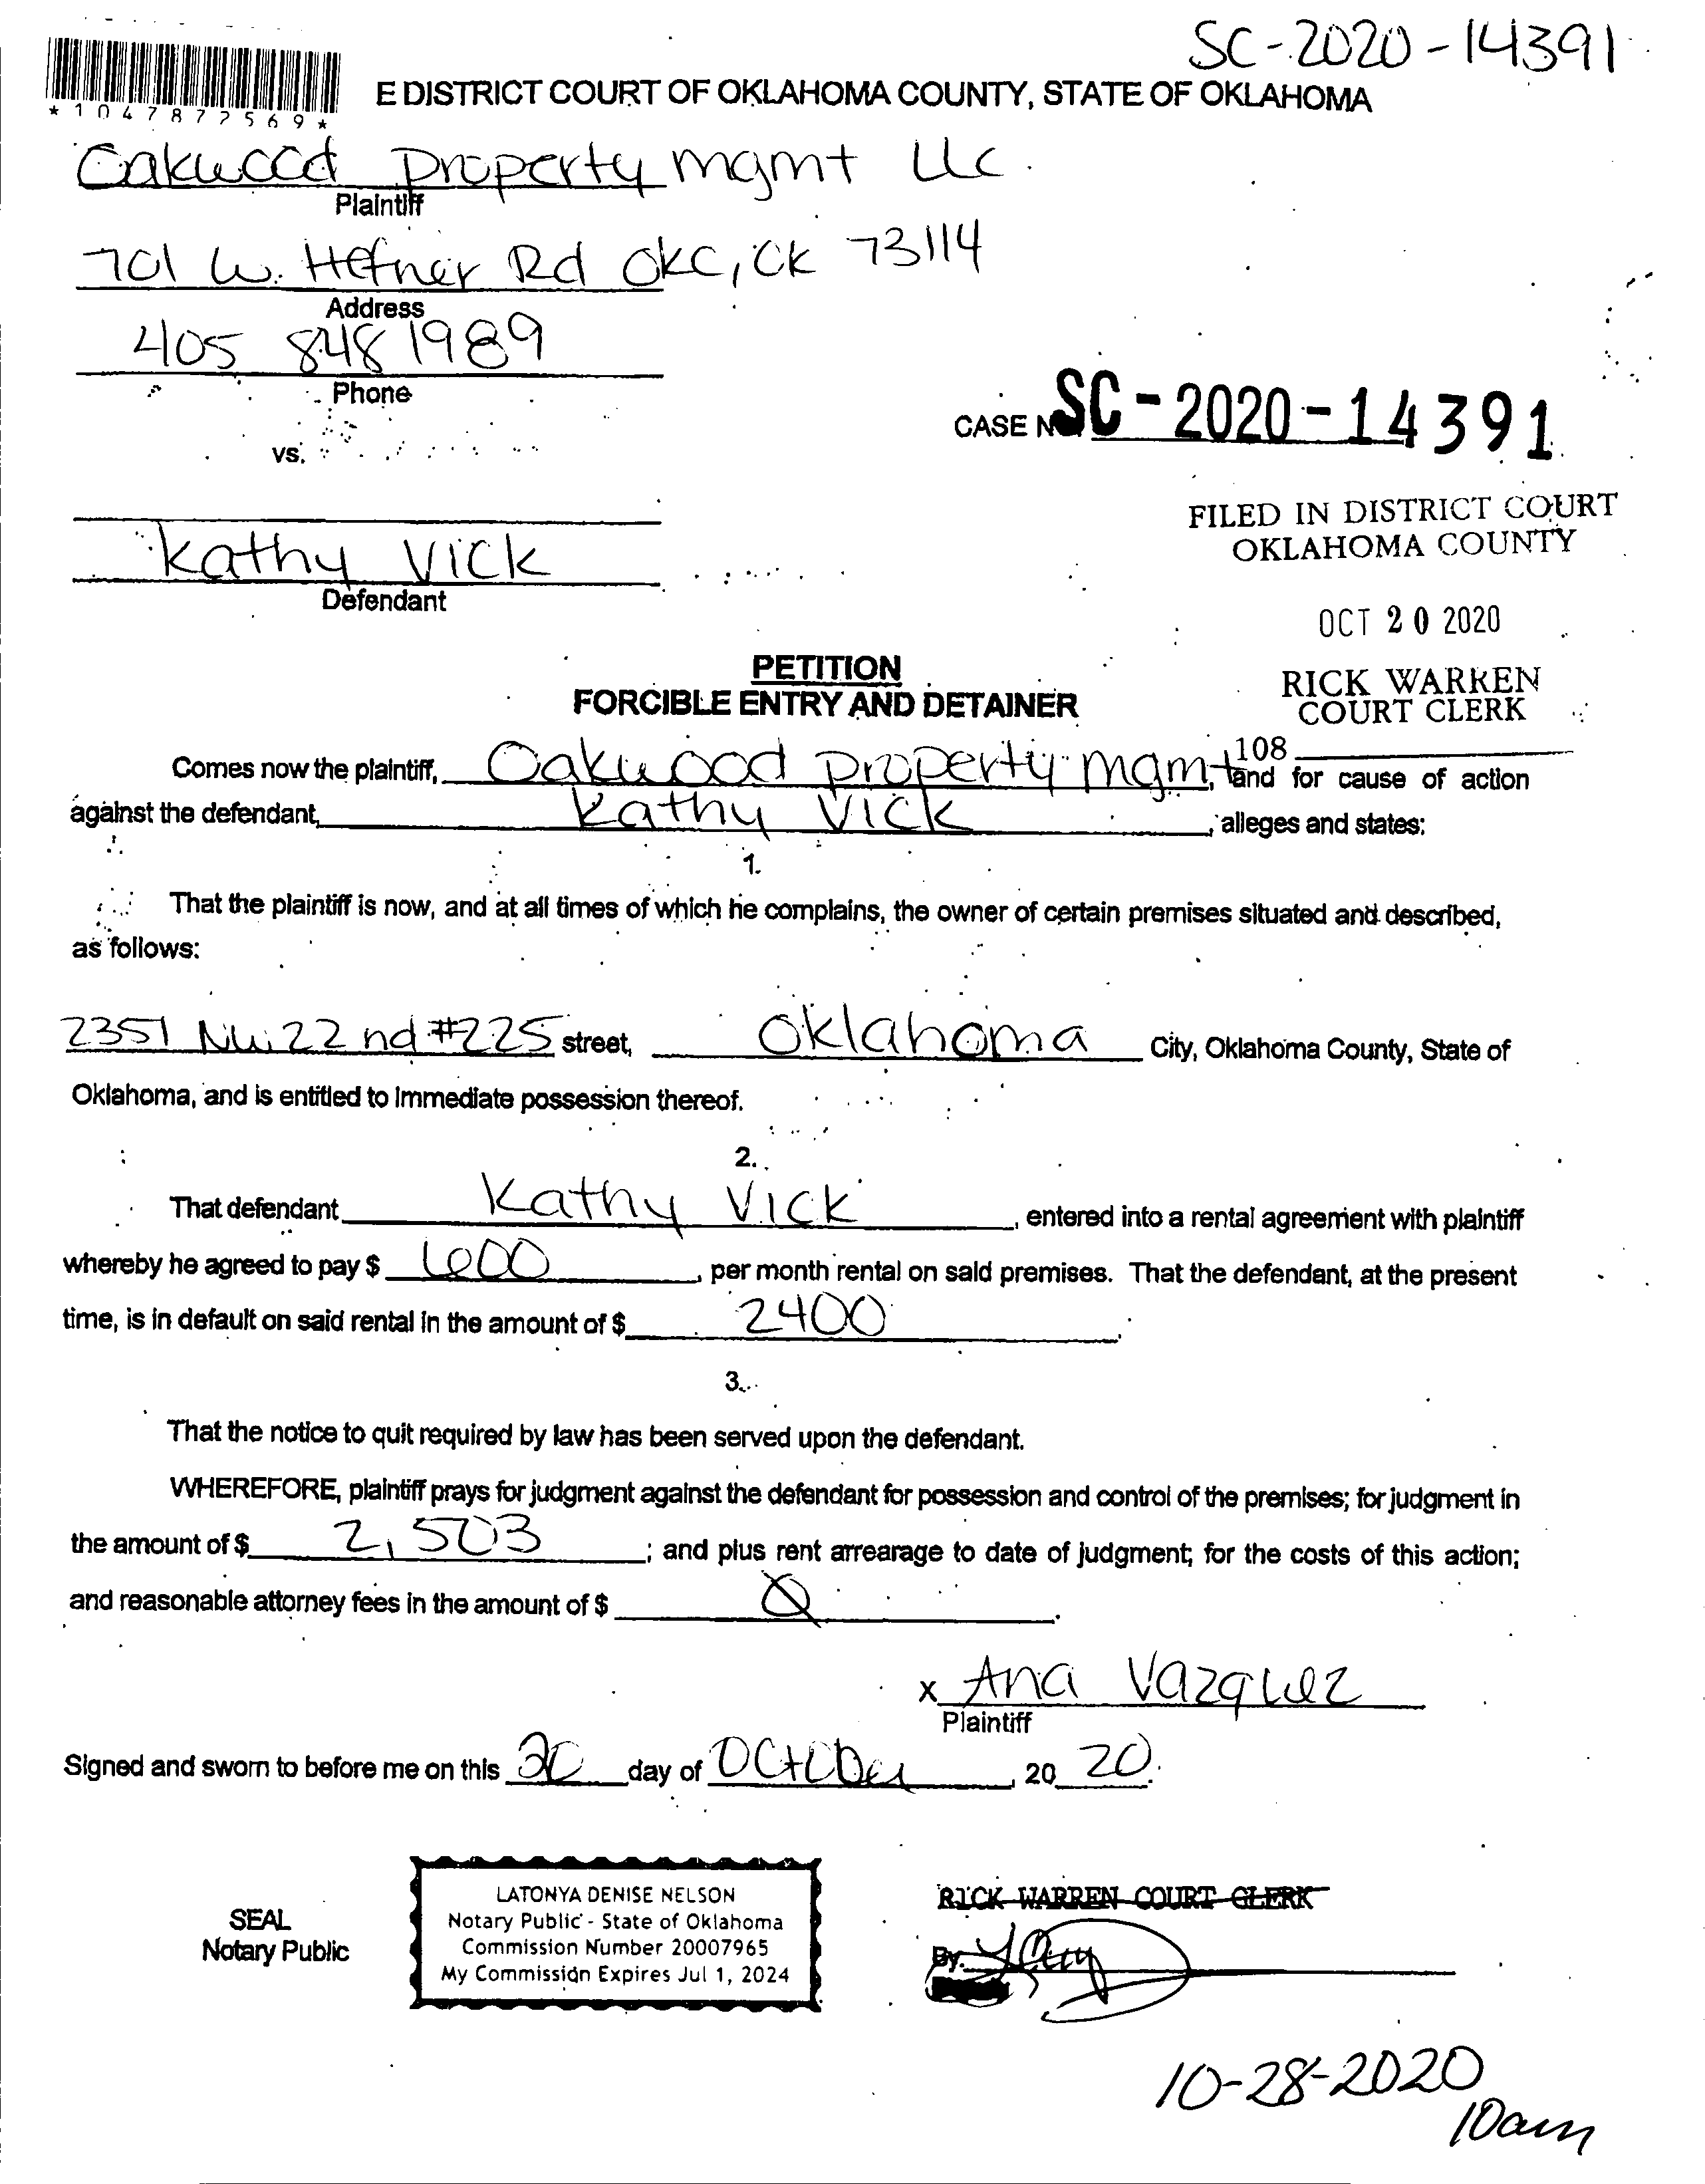 SC-2020-14391
*1047877569*
E DISTRICT COURT OF OKLAHOMA COUNTY, STATE OF OKLAHOMA
Oakwood property mgmt LLC
Plaintiff
701 W. Hefner Rd OKC, OK 73114
Address
405 848 1989
Phone
CASE NO. SC-2020-14391
vs.
FILED IN DISTRICT COURT
OKLAHOMA COUNTY
Kathy Vick
Defendant
OCT 20 2020
PETITION
FORCIBLE ENTRY AND DETAINER
RICK WARREN
COURT CLERK
108
Comes now the plaintiff, Oakwood property mgmt, and for cause of action
against the defendant, Kathy Vick, alleges and states:
1.
That the plaintiff is now, and at all times of which he complains, the owner of certain premises situated and described,
as follows:
2351 NW 22nd #225 street, Oklahoma City, Oklahoma County, State of
Oklahoma, and is entitled to immediate possession thereof.
2.
That defendant Kathy Vick, entered into a rental agreement with plaintiff
whereby he agreed to pay $ 600, per month rental on said premises. That the defendant, at the present
time, is in default on said rental in the amount of $ 2400.
3.
That the notice to quit required by law has been served upon the defendant.
WHEREFORE, plaintiff prays for judgment against the defendant for possession and control of the premises; for judgment in
the amount of $ 2,503; and plus rent arrearage to date of judgment; for the costs of this action;
and reasonable attorney fees in the amount of $ Ø.
x Ana Vazquez
Plaintiff
Signed and sworn to before me on this day of October, 20 20.
SEAL
Notary Public
LATONYA DENISE NELSON
Notary Public - State of Oklahoma
Commission Number 20007965
My Commission Expires Jul 1, 2024
RICK WARREN COURT CLERK
By.
10-28-2020
10am